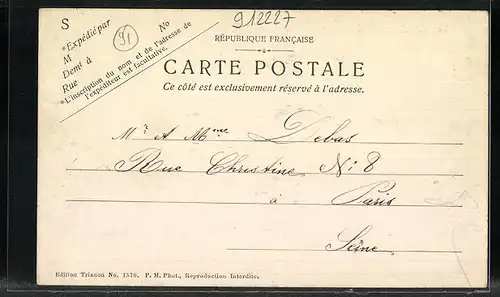 912227
S
*Expédié par
M
Demt à
Rue No
*L'inscription du nom et de l'adresse de
l'expéditeur est facultative.
91
RÉPUBLIQUE FRANÇAISE
CARTE POSTALE
Ce côté est exclusivement réservé à l'adresse.
Mr et Mme Debas
Rue Christine No 8
à Paris
Seine
Edition Trianon No. 1570. P. M. Phot., Reproduction Interdite.